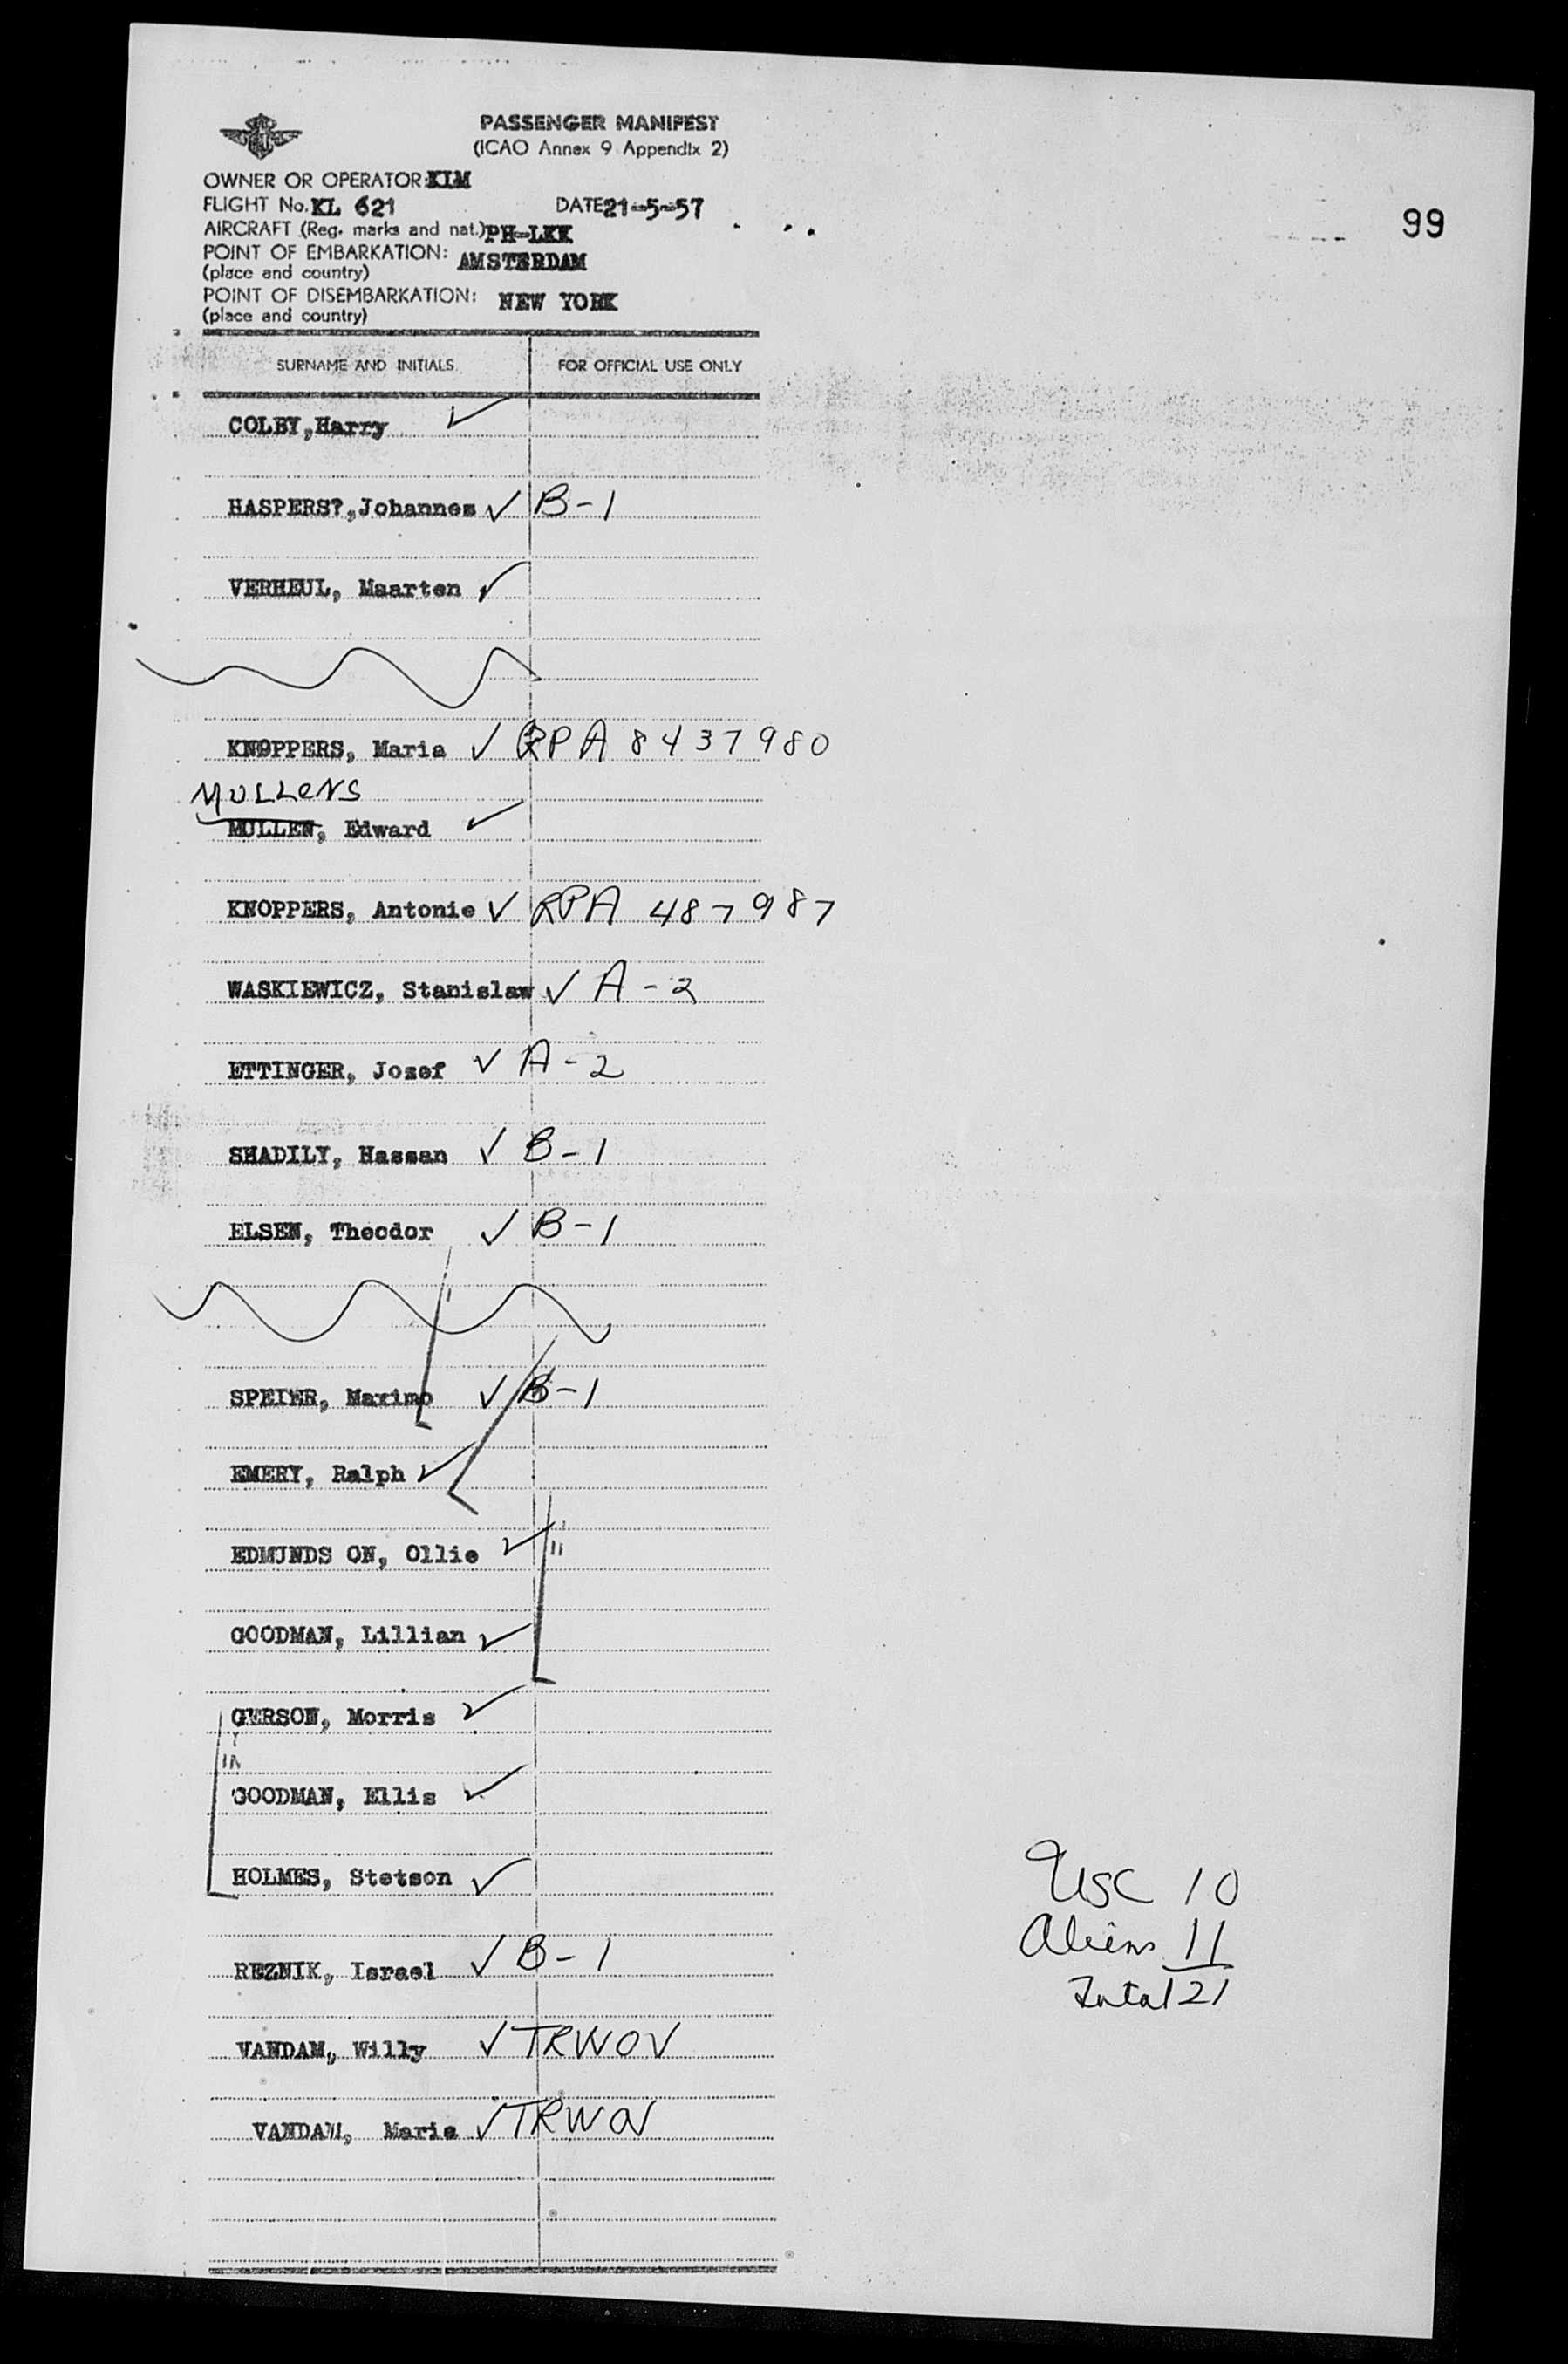 PASSENGER MANIFEST
(ICAO Annex 9 Appendix 2)
OWNER OR OPERATOR:KLM
FLIGHT No. KL 621 DATE 21-5-57
AIRCRAFT (Reg. marks and nat.) PH-LKK
POINT OF EMBARKATION: AMSTERDAM
(place and country)
POINT OF DISEMBARKATION: NEW YORK
(place and country)
99
SURNAME AND INITIALS FOR OFFICIAL USE ONLY
COLBY,Harry ✓
HASPERS?,Johannes ✓ B-1
VERHEUL, Maarten ✓
KNOPPERS, Maria ✓ RPA 8437980
MULLENS
MULLEN, Edward ✓
KNOPPERS, Antonie ✓ RPA 487987
WASKIEWICZ, Stanislaw ✓ A-2
ETTINGER, Jozef ✓ A-2
SHADILY, Hassan ✓ B-1
ELSEN, Theodor ✓ B-1
SPEIER, Maximo ✓ B-1
EMERY, Ralph ✓
EDMUNDS ON, Ollie ✓
GOODMAN, Lillian ✓
GERSON, Morris ✓
GOODMAN, Ellis ✓
HOLMES, Stetson ✓
REZNIK, Israel ✓ B-1
VANDAM, Willy ✓ TRWOV
VANDAM, Maria ✓ TRWOV
USC 10
Aliens 11
Total 21